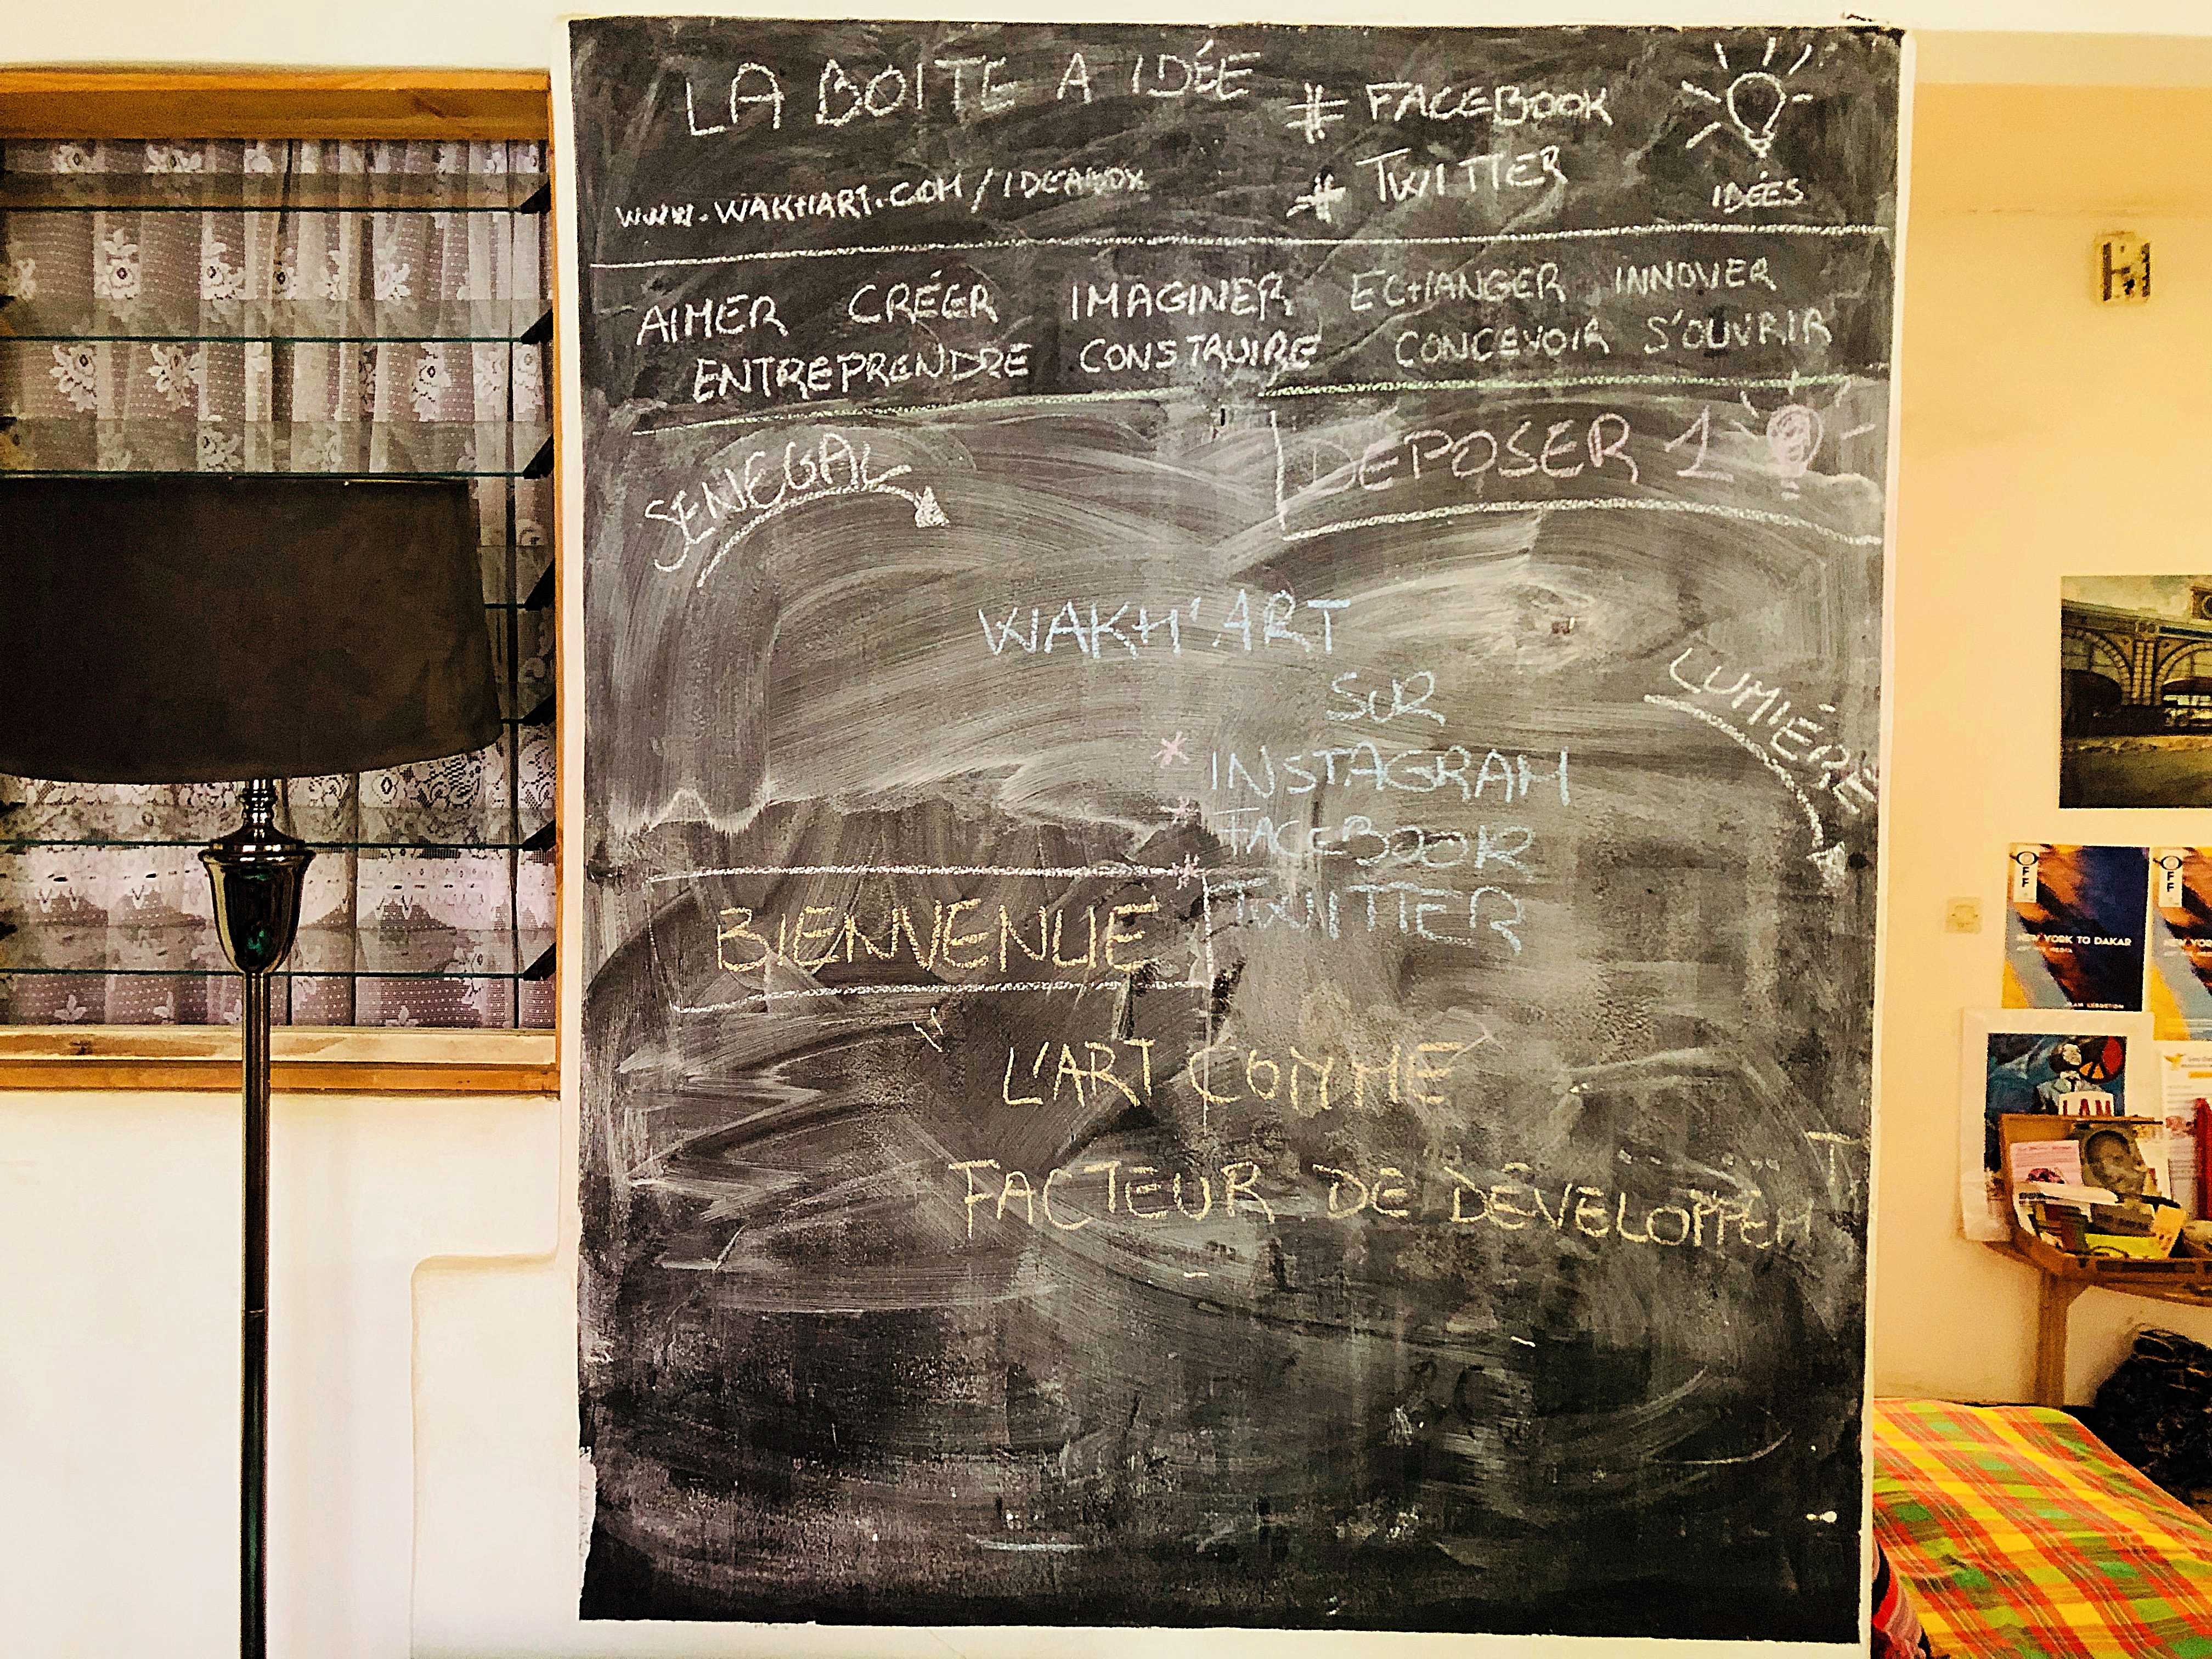 LA BOITE A IDÉE
# FACEBOOK
# TWITTER
IDÉES
WWW.WAKHART.COM/IDEABOX
AIMER CRÉER IMAGINER ECHANGER INNOVER
ENTREPRENDRE CONSTRUIRE CONCEVOIR S'OUVRIR
SENEGAL
DEPOSER 1
WAKH'ART
SUR
* INSTAGRAM
* FACEBOOK
* TWITTER
LUMIÈRE
BIENVENUE
" L'ART COMME
FACTEUR DE DÉVELOPPEM T
OFF
NEW YORK TO DAKAR
OFF
NEW YORK
LAM